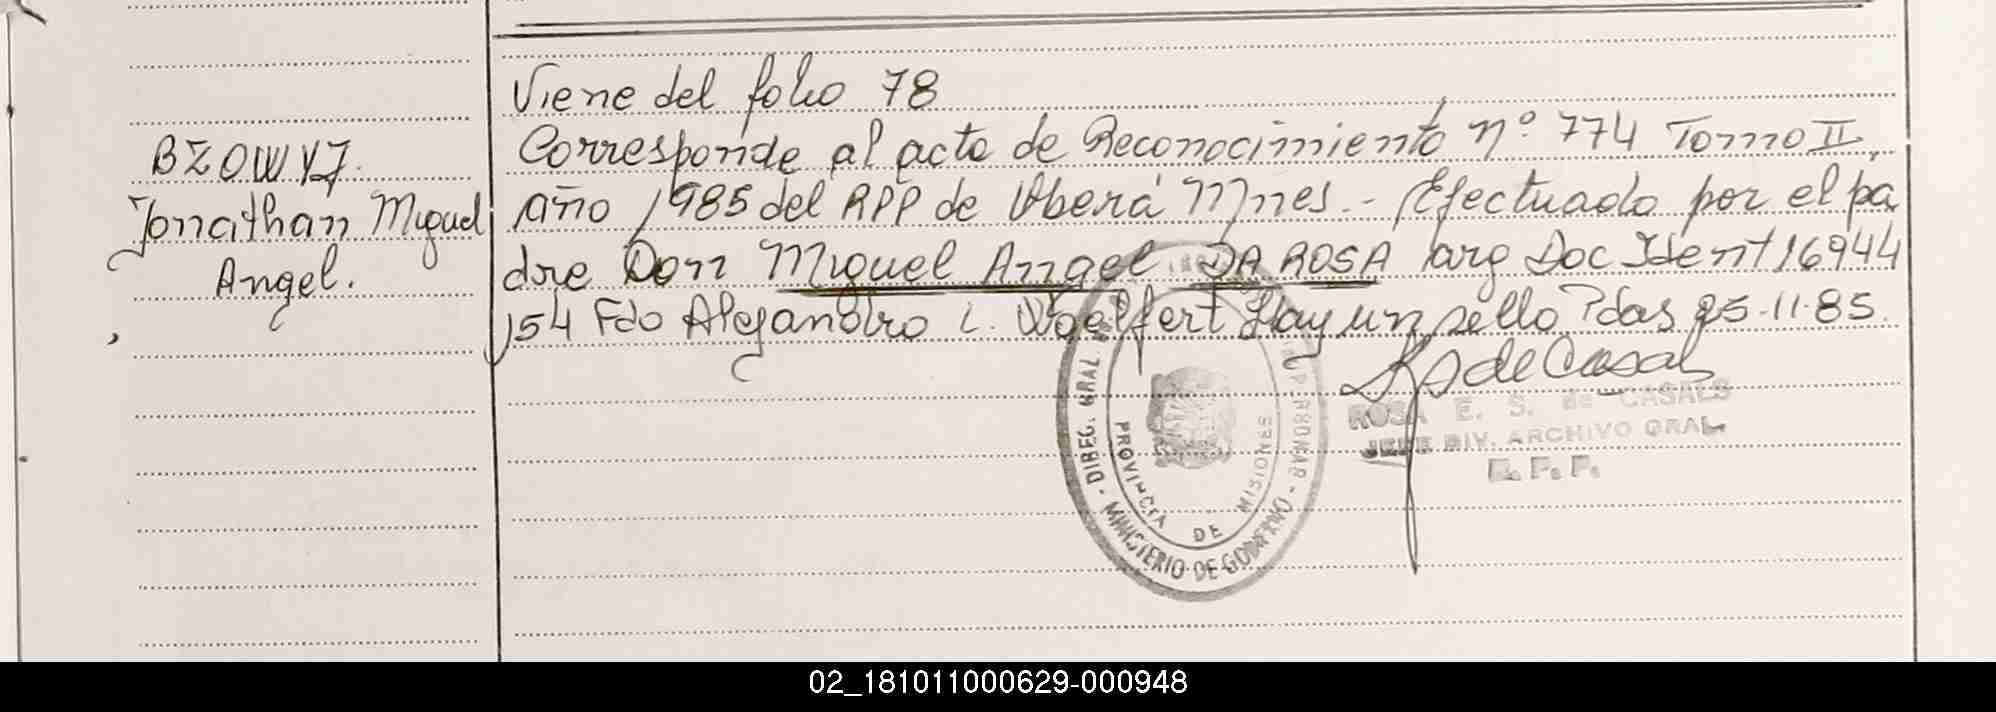 Viene del folio 78
BZOWYJ.
Jonathan Miguel
Angel.
Corresponde al acta de Reconocimiento nº 774 Tomo II,
año 1985 del RPP de Oberá Mnes.- Efectuado por el pa
dre Don Miguel Angel DA ROSA arg Doc Ident 16944
154 Fdo Alejandro L. Woelfert Hay un sello Pdas 25-11-85.
RS de Casals
ROSA E. S. de CASALS
JEFE DIV. ARCHIVO GRAL.
R. P. P.
DIREC. GRAL.
MINISTERIO DE GOBIERNO
PROVINCIA DE MISIONES
02_181011000629-000948